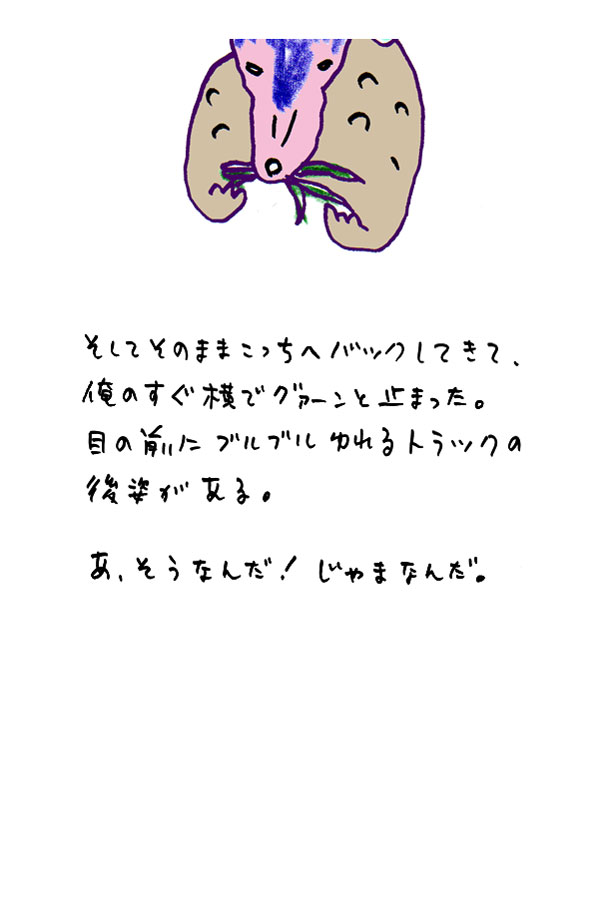 そしてそのままこっちへバックしてきて、
俺のすぐ横でグァーンと止まった。
目の前にブルブルゆれるトラックの
後姿がある。
あ、そうなんだ！じゃまなんだ。